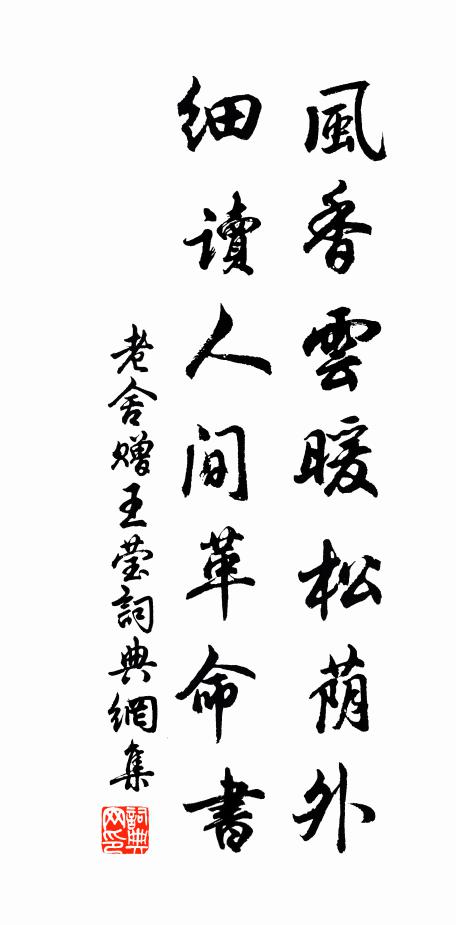 風香雲暖松蔭外
細讀人間革命書
老舍贈王莹詞典網集
詞典网印